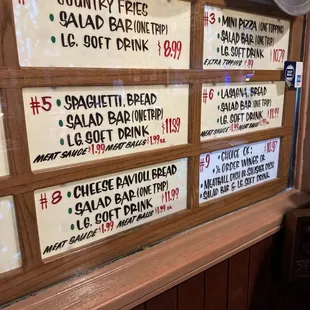 COUNTRY FRIES
SALAD BAR (ONE TRIP)
LG. SOFT DRINK $8.99
#3 MINI PIZZA (ONE TOPPING)
SALAD BAR (ONE TRIP)
LG. SOFT DRINK
EXTRA TOPPING $10.79
#5 SPAGHETTI, BREAD
SALAD BAR (ONE TRIP)
LG. SOFT DRINK $11.39
MEAT SAUCE $1.99 MEAT BALLS $1.99
#6 LASAGNA, BREAD
SALAD BAR (ONE TRIP)
LG. SOFT DRINK $11.99
MEAT SAUCE $1.99 MEAT BALLS $1.99
#8 CHEESE RAVIOLI, BREAD
SALAD BAR (ONE TRIP)
LG. SOFT DRINK $11.99
MEAT SAUCE $1.99 MEAT BALLS $1.99
#9 CHOICE OF: $10.97
1/2 ORDER WINGS OR
MEATBALL DISH OR SAUSAGE DISH
SALAD BAR & LG. SOFT DRINK